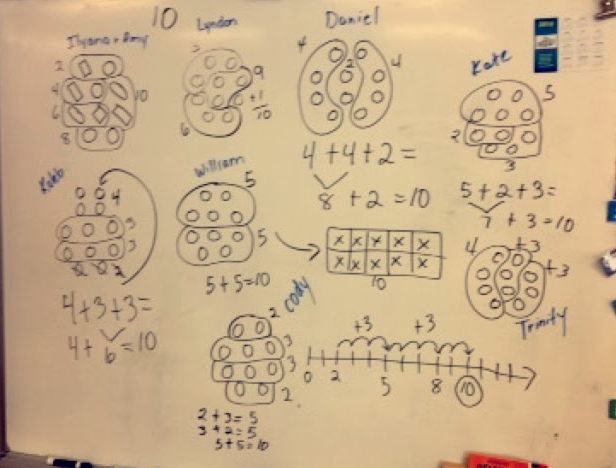 10
Ilyana + Amy
2
4
6
8
10
Lyndon
3
9
+1
10
6
Daniel
4
2
4
4 + 4 + 2 =
8 + 2 = 10
Kate
5
2
3
5 + 2 + 3 =
7 + 3 = 10
Kaleb
4
3
3
2
4 + 3 + 3 =
4 + 6 = 10
William
5
5
5 + 5 = 10
x x x x x
x x x x x
10
4
+3
+3
Trinity
Cody
2
3
3
2
2 + 3 = 5
3 + 2 = 5
5 + 5 = 10
+3 +3
0 2 5 8 10